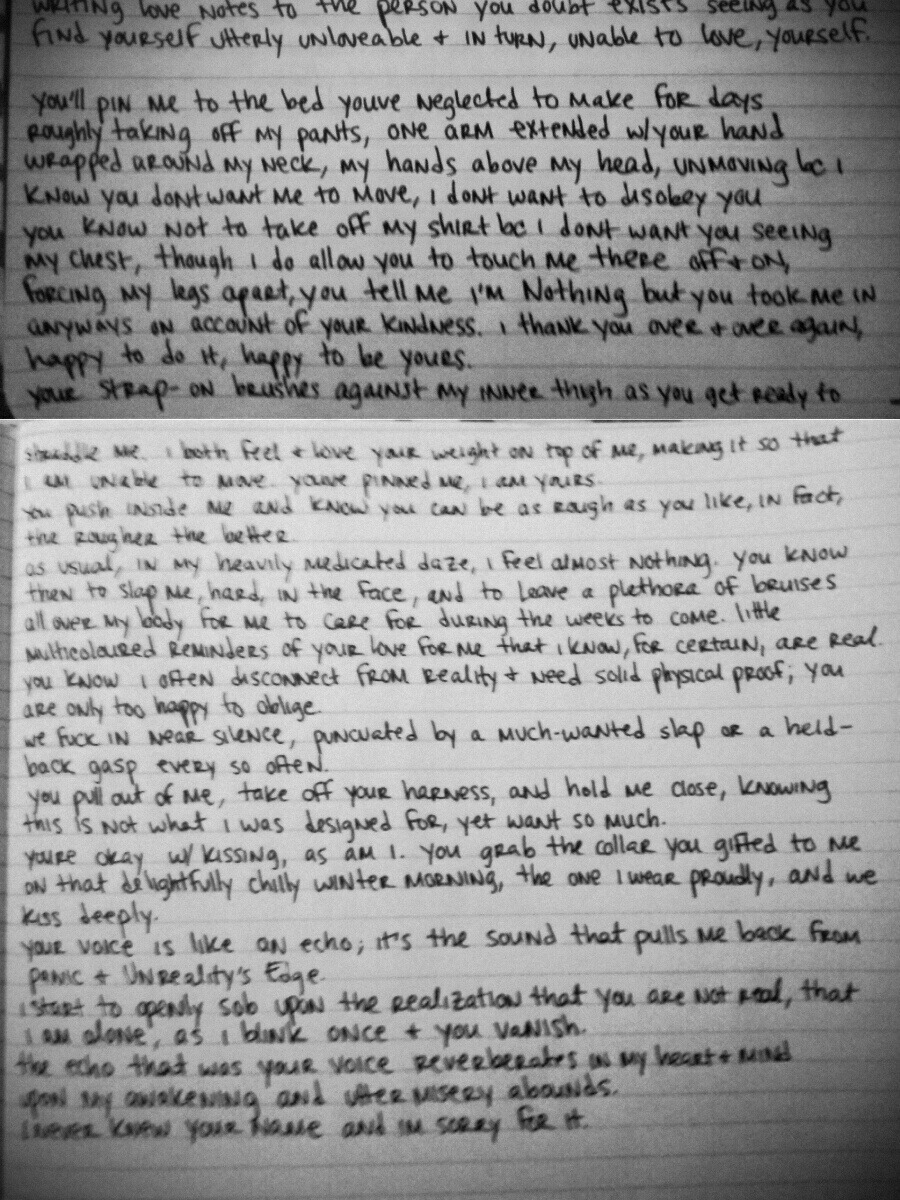 writing love notes to the person you doubt exists seeing as you
find yourself utterly unloveable + in turn, unable to love, yourself.
you'll pin me to the bed youve neglected to make for days
roughly taking off my pants, one arm extended w/your hand
wrapped around my neck, my hands above my head, unmoving bc i
know you dont want me to move, i dont want to disobey you
you know not to take off my shirt bc i dont want you seeing
my chest, though i do allow you to touch me there off + on,
forcing my legs apart, you tell me i'm nothing but you took me in
anyways on account of your kindness. i thank you over + over again,
happy to do it, happy to be yours.
your strap-on brushes against my inner thigh as you get ready to
straddle me. i both feel + love your weight on top of me, making it so that
i am unable to move. youve pinned me, i am yours.
you push inside me and know you can be as rough as you like, in fact,
the rougher the better.
as usual, in my heavily medicated daze, i feel almost nothing. you know
then to slap me, hard, in the face, and to leave a plethora of bruises
all over my body for me to care for during the weeks to come. little
multicoloured reminders of your love for me that i know, for certain, are real.
you know i often disconnect from reality + need solid physical proof; you
are only too happy to oblige.
we fuck in near silence, puncuated by a much-wanted slap or a held-
back gasp every so often.
you pull out of me, take off your harness, and hold me close, knowing
this is not what i was designed for, yet want so much.
youre okay w/ kissing, as am i. you grab the collar you gifted to me
on that delightfully chilly winter morning, the one i wear proudly, and we
kiss deeply.
your voice is like an echo; it's the sound that pulls me back from
panic + Unreality's Edge.
i start to openly sob upon the realization that you are not real, that
i am alone, as i blink once + you vanish.
the echo that was your voice reverberates in my heart + mind
upon my awakening and utter misery abounds.
i never knew your name and im sorry for it.